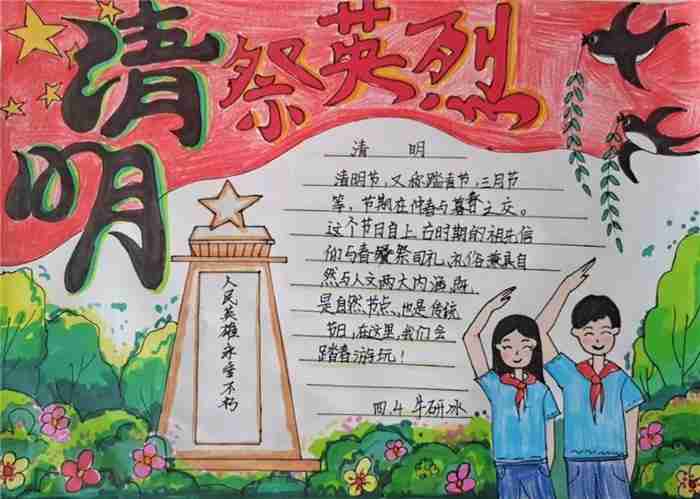 清明
祭英烈
人民英雄永垂不朽
清 明
清明节,又称踏青节,三月节
等,节期在仲春与暮春之交。
这个节日自上古时期的祖先信
仰与春祭司礼,礼俗兼具自
然与人文两大内涵,既
是自然节点,也是传统
节日,在这里,我们会
踏春游玩!
四.4 牛研冰